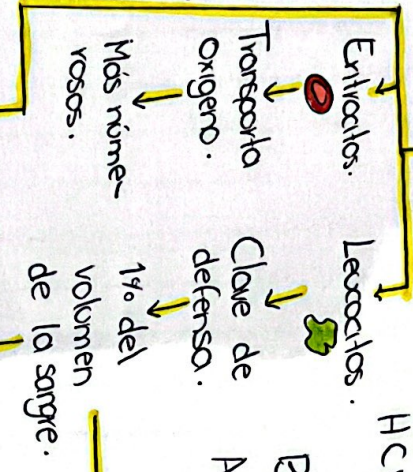 Eritrocitos.
Transporta
oxigeno.
Más núme-
rosos.
Leucocitos.
Clave de
defensa.
1% del
volumen
de la sangre.
HC